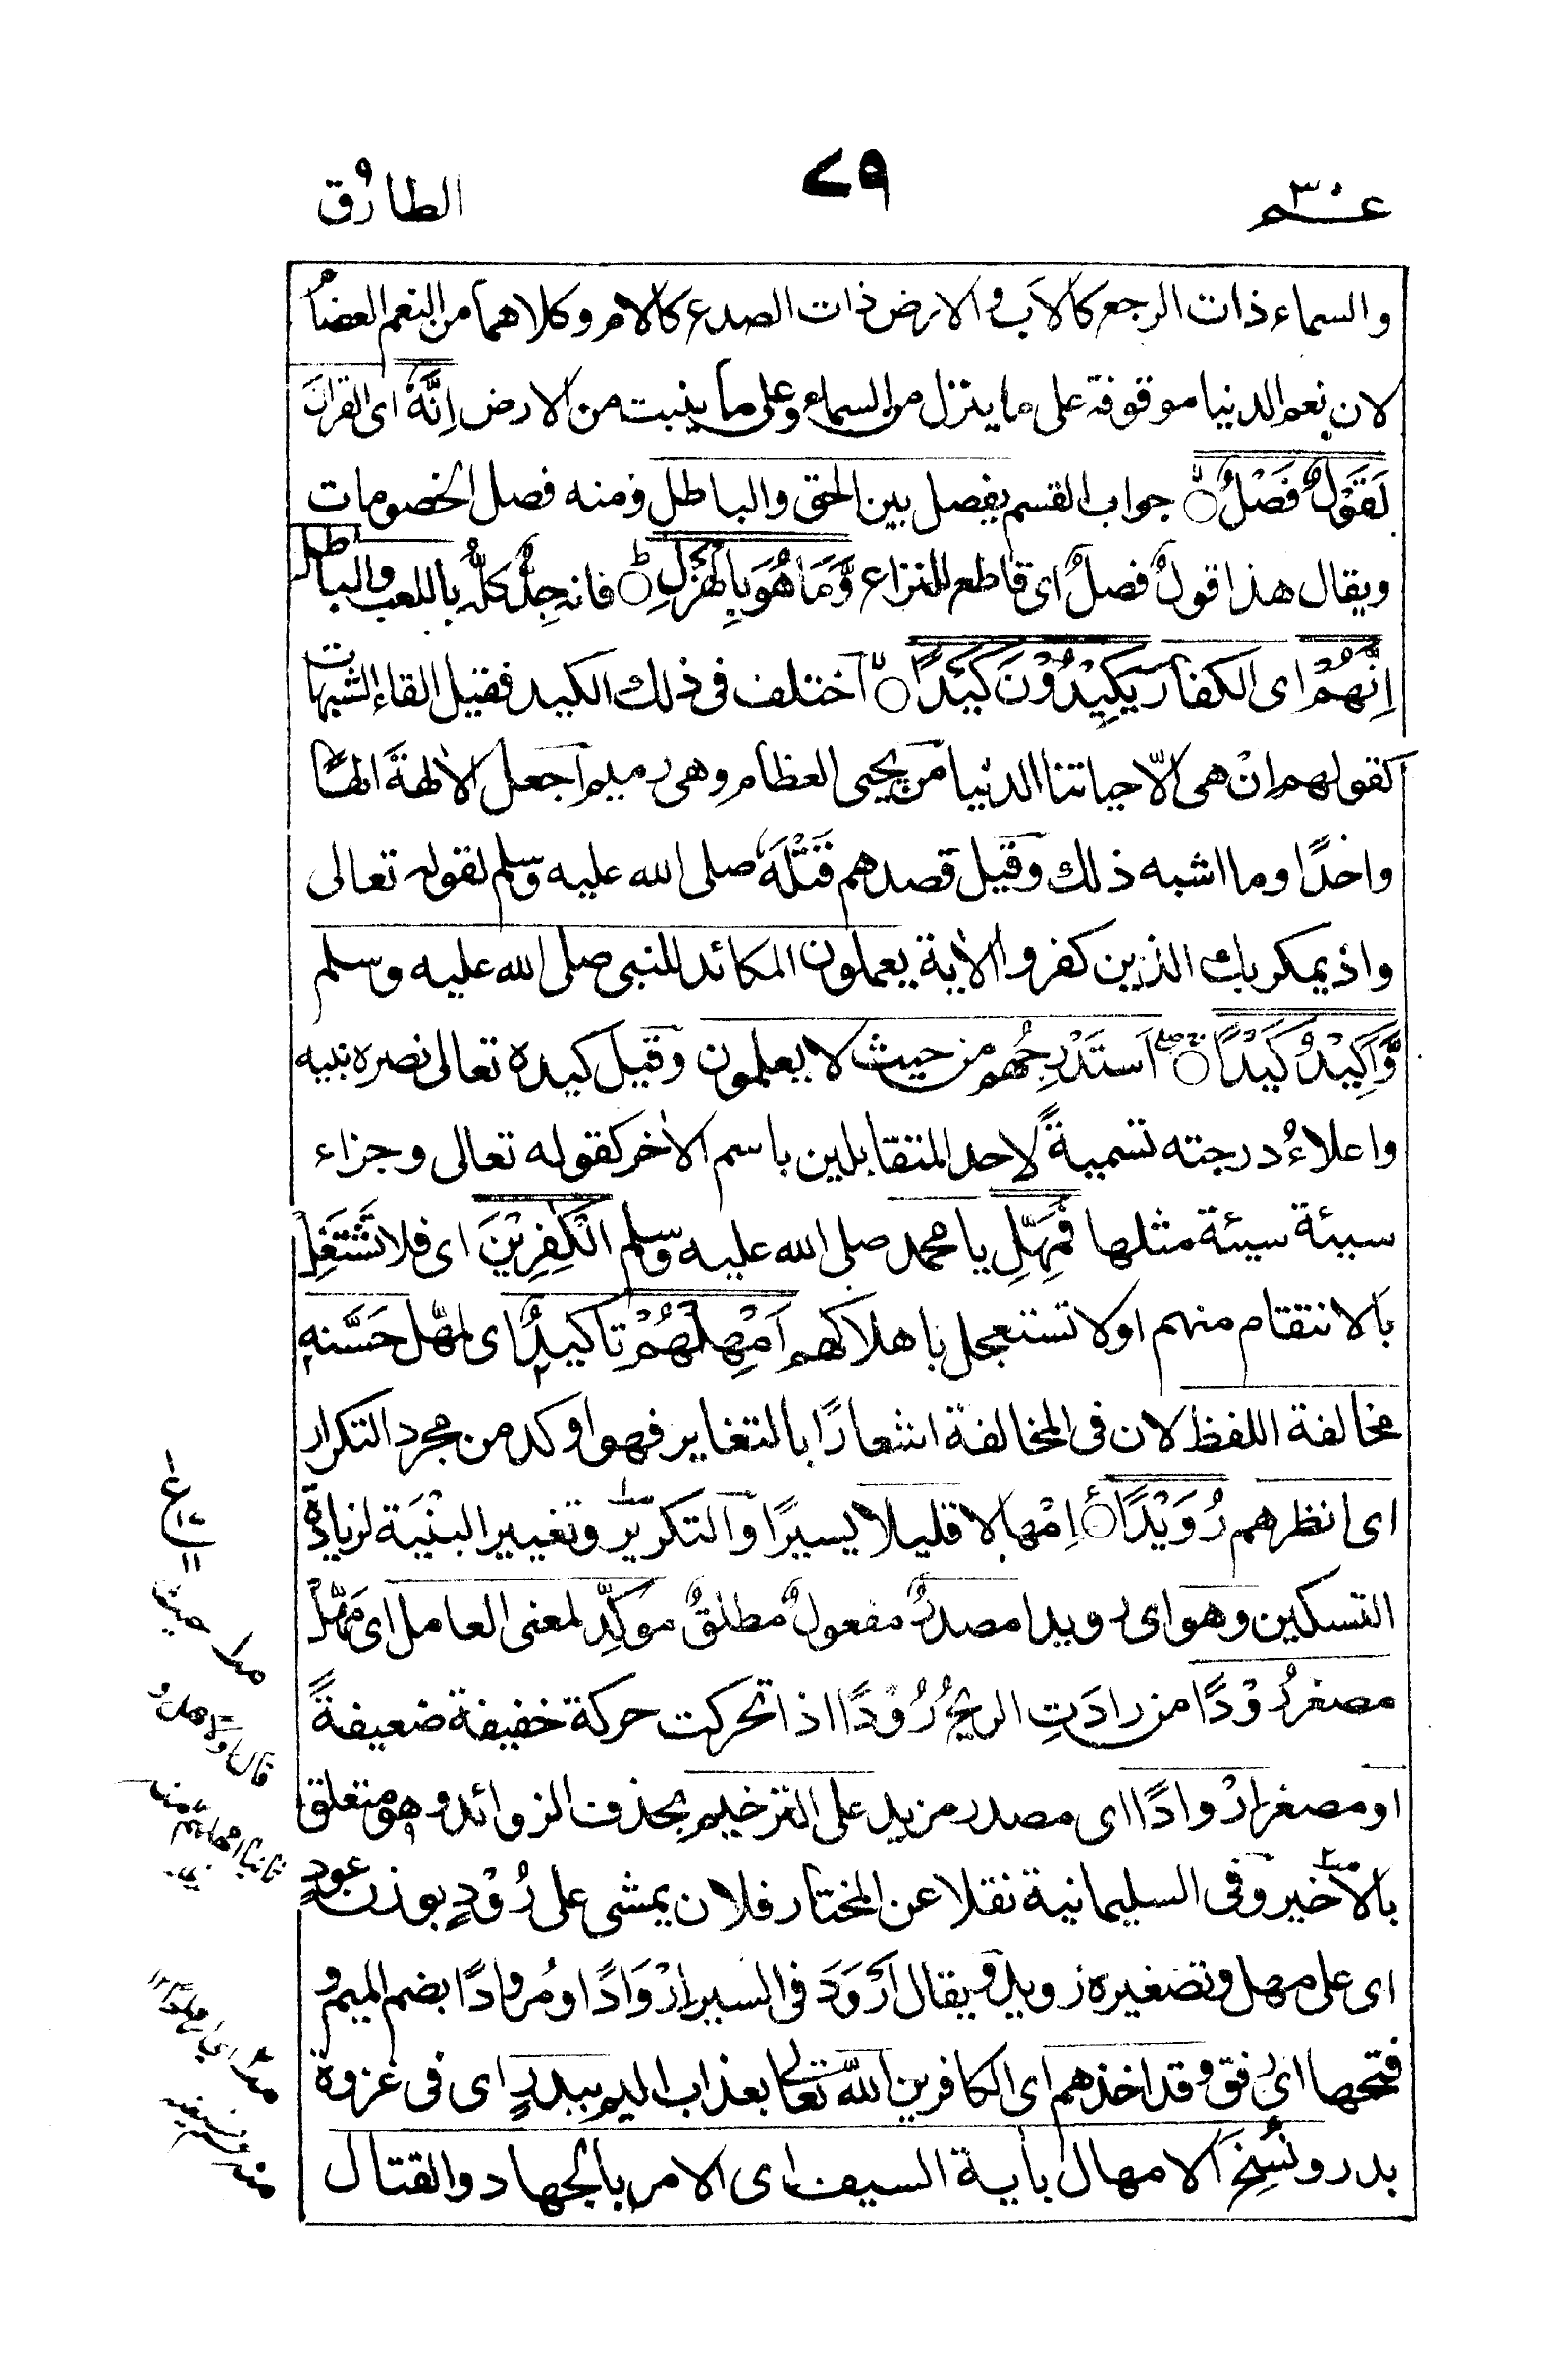 عم ٣٠
٧٩
الطارق
والسماء ذات الرجع كالاب والارض ذات الصدع كالام وكلاهما من النعم العضاُ
لان نعم الدنيا موقوفة على ما ينزل من السماء وعلى ما ينبت من الارض اِنَّهٗ اى القران
لَقَوْلٌ فَصْلٌ جواب القسم يفصل بين الحق والباطل ومنه فصل الخصومات
ويقال هذا قولٌ فصلٌ اى قاطع للنزاع وَّمَا هُوَ بِالْهَزْلِ فانه جِدٌّ كلُّهٗ باللعب والباطل
اِنَّهُمْ اى الكفار يَكِيْدُوْنَ كَيْدًا اختلف فى ذلك الكيد فقيل القاء الشبهات
كقولهم اِنْ هى الّا حياتنا الدنيا من يحيى العظام وهى رميم اجعل الاٰلهةَ الٰهًا
واحدًا وما اشبه ذلك وقيل قصدهم قَتْلَهٗ صلى الله عليه وسلم لقوله تعالى
واذ يمكر بك الذين كفروا الاٰية يعملون المكائد للنبى صلى الله عليه وسلم
وَّاَكِيْدُ كَيْدًا اَستَدْرِجُهم من حيث لا يعلمون وقيل كيده تعالى نصره نبيه
واعلاءُ درجته تسميةً لاحد المتقابلين باسم الاٰخر كقوله تعالى وجزاء
سيئة سيئة مثلها فَمَهِّلِ يا محمد صلى الله عليه وسلم الْكٰفِرِيْنَ اى فلا تَشْتَغِلْ
بالانتقام منهم او لا تستعجل باهلاكهم اَمْهِلْهُمْ تاكيدٌ اى لمهّل حَسَّنه
مخالفة اللفظ لان فى المخالفة اشعارًا بالتغاير فهو اوكد من مجرد التكرار
اى انظرهم رُوَيْدًا اِمْهالا قليلا يسيرًا والتكرير وتغيير البنْيَة لزيادة
التسكين وهو اى رويدا مصدرٌ مفعولٌ مطلقٌ مؤكِّد لمعنى العامل اى مَهِّلْ
مصغر رُوْدًا من رادَتِ الريحُ رُوْدًا اذا تحركت حركة خفيفة ضعيفةً
او مصغر اِرْوادًا اى مصدر مزيد على الترخيم بحذف الزوائد وهو متعلق
بالاَخير وفى السليمانية نقلا عن المختار فلان يمشى على رُوْدٍ بوزن عودٍ
اى على مهل وتصغيره رويد ويقال اَرْوَدَ فى السير اِرْوَادًا ومُرودًا بضم الميم و
فتحها اى رفق وقد اخذهم اى الكافرين الله تعالى بعذاب اليم ببدرٍ اى فى غزوة
بدر ونُسِخَ الامهال باٰية السيف اى الامر بالجهاد والقتال